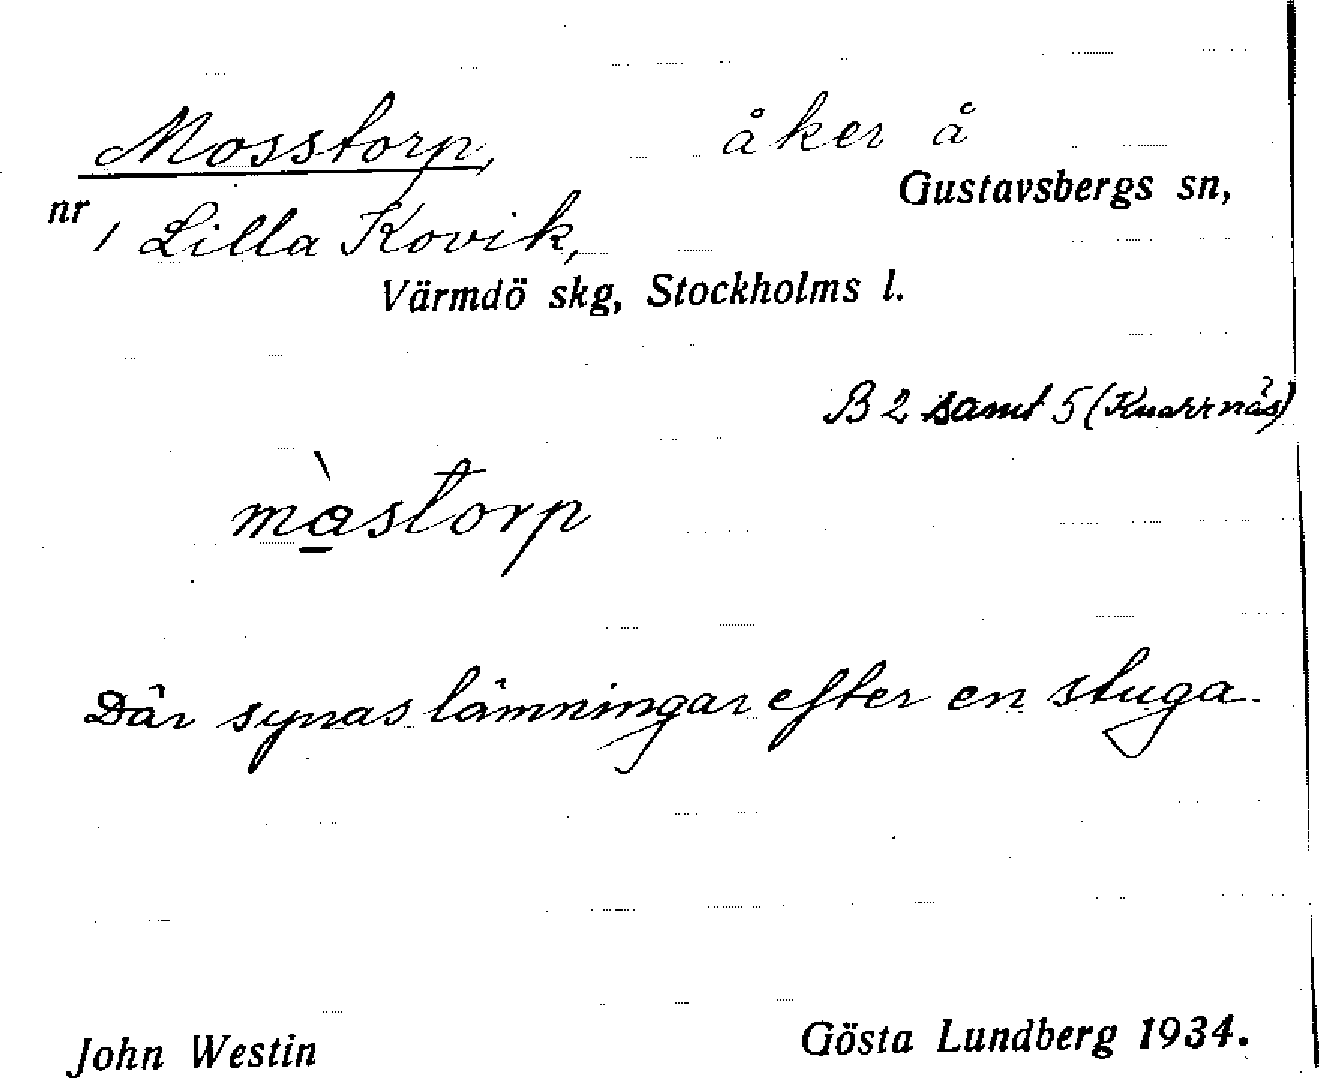 Mosstorp, åker å
Gustavsbergs sn,
nr 1 Lilla Kovik,
Värmdö skg, Stockholms l.
B 2 samt 5 (Knarrnäs)
mòstorp
Där synas lämningar efter en stuga
John Westin Gösta Lundberg 1934.